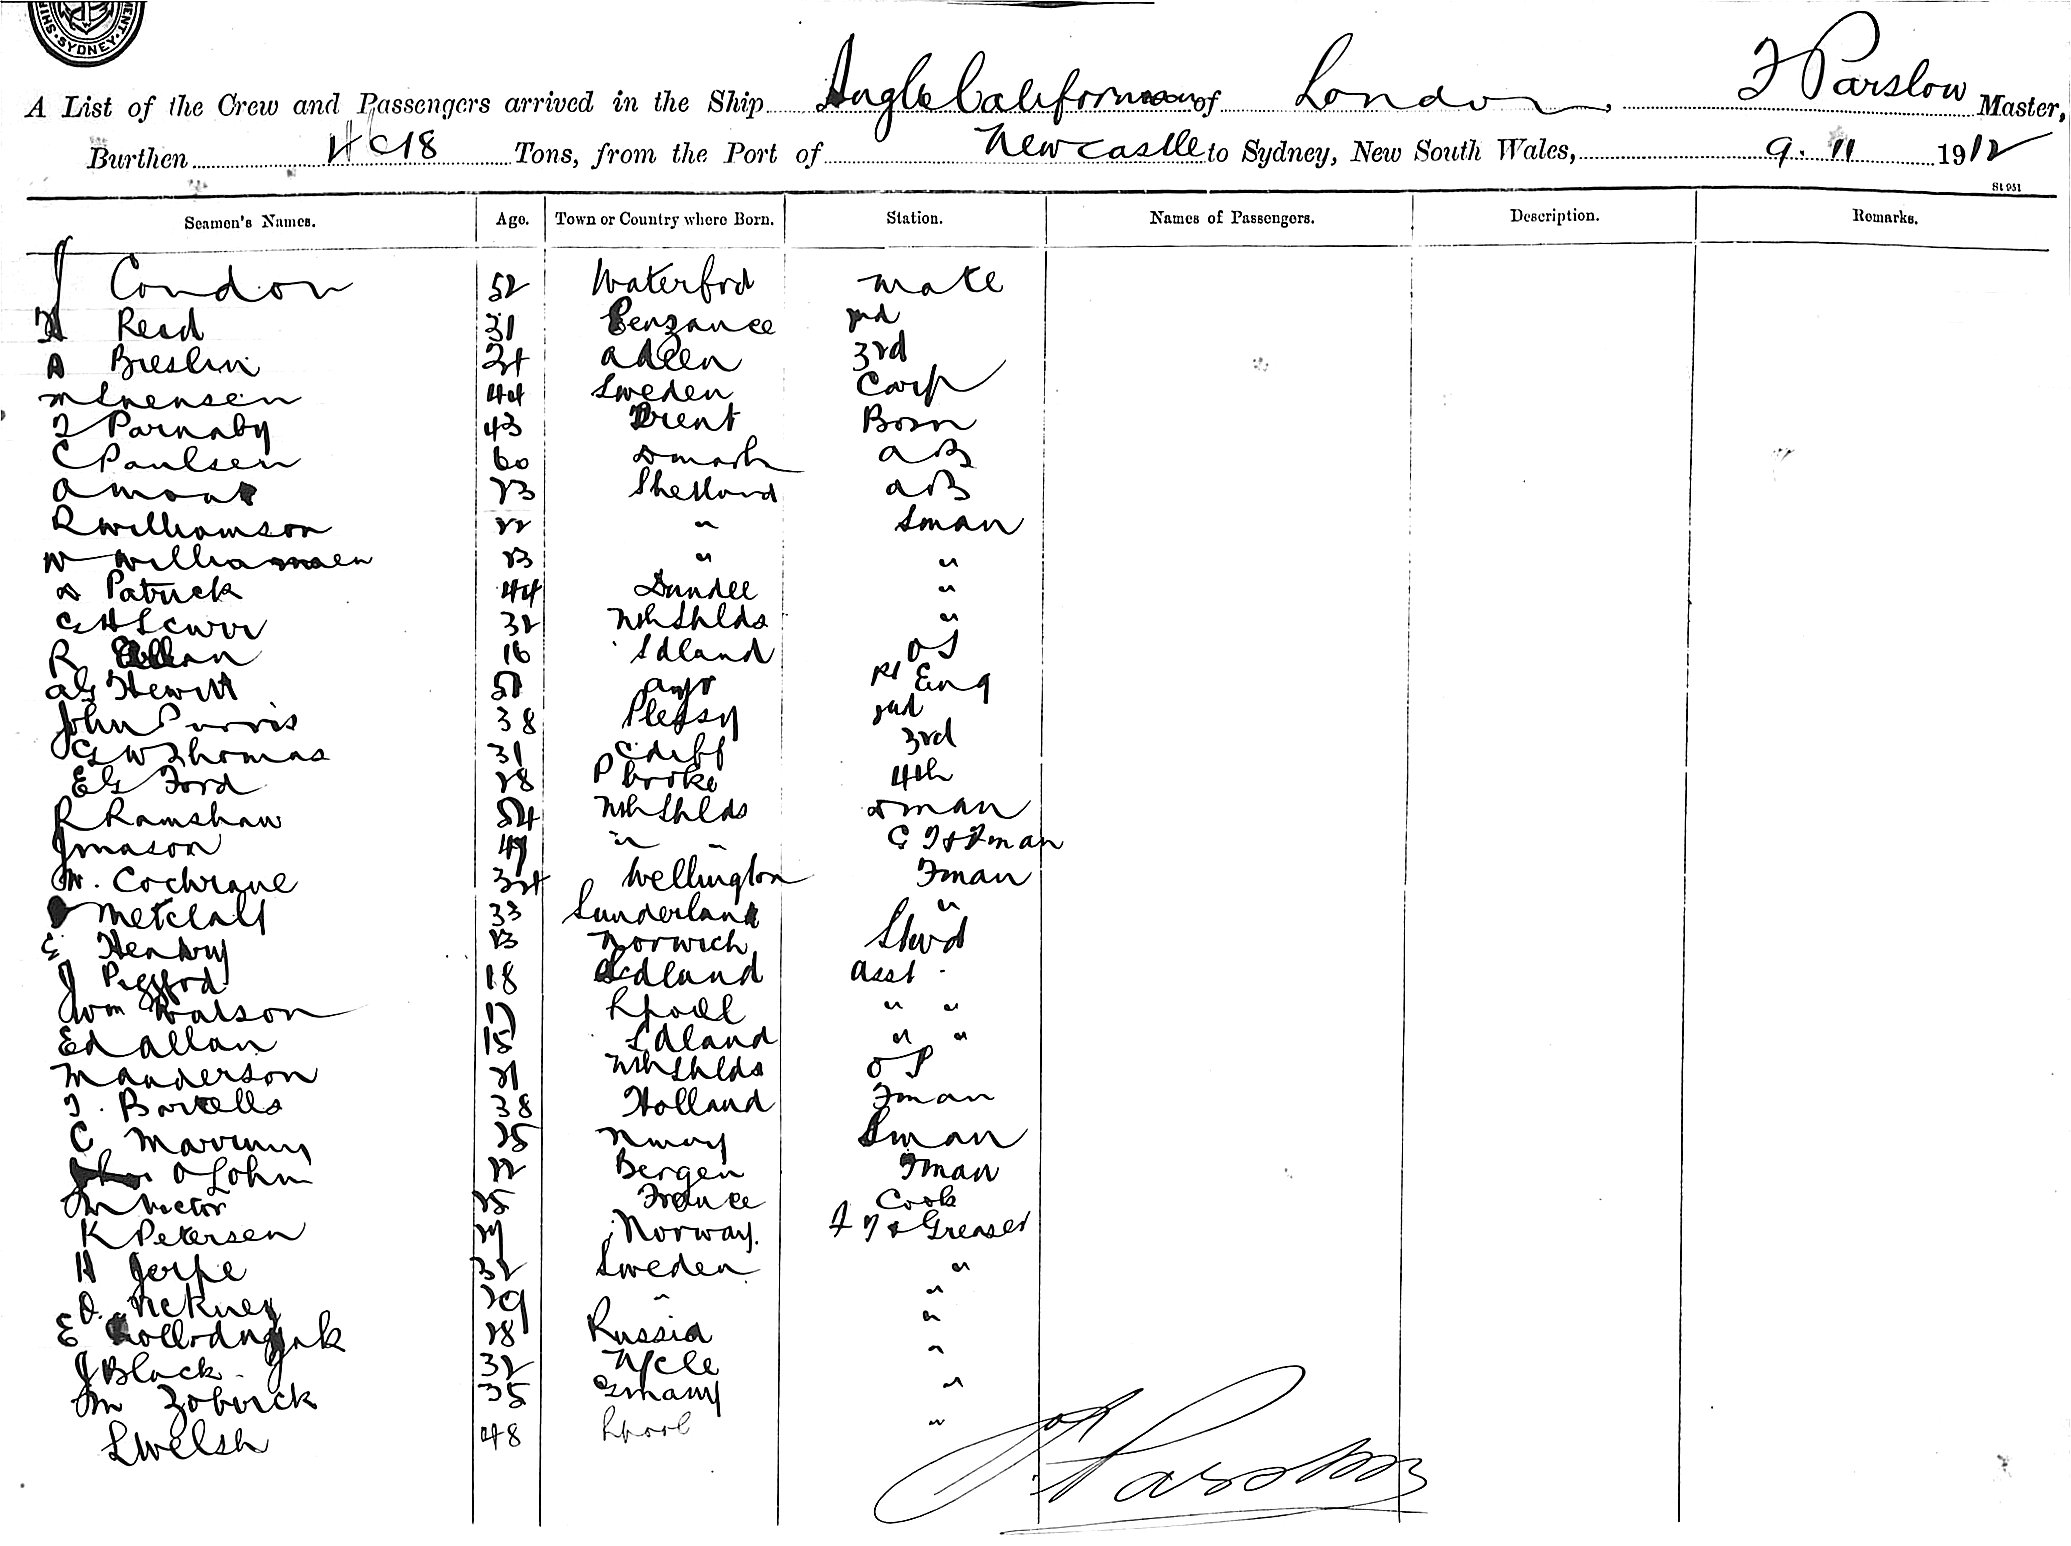 SYDNEY
A List of the Crew and Passengers arrived in the Ship Anglo Californian of London, F Parslow Master,
Burthen Tons, from the Port of Newcastle to Sydney, New South Wales, 9. 11 1912
St 951
Seamen's Names. Age. Town or Country where Born. Station. Names of Passengers. Description. Remarks.
J Condon 52 Waterford mate
H Read 31 Penzance 2nd
A Breslin 24 Adeen 3rd
44 Sweden Carp
T Parnaby 43 Bosn
C Paulsen 60 Dmark AB
A Mouat 23 Shetland AB
R Williamson 22 " Sman
W Williamson 23 " "
D Patrick 44 Dundee "
G H Scurr 32 Nth Shlds "
R Allan 16 Sdland OS
AG Hewitt 51 Ayr 1st Eng
John Purvis 38 Plessy 2nd
G W Thomas 31 Cdiff 3rd
EG Ford 28 P broke 4th
R Ramshaw 54 Nth Shlds Dman
J Mason 47 " " F & Fman
W. Cochrane 34 Wellington Fman
Metclalf 33 Sunderland "
E Hendry 23 Norwich Stwd
J Pigford 18 Sdland Asst
Wm Watson 17 Lpool " "
Ed Allan 15 Sdland " "
M Anderson 21 Nth Shlds OS
T. Bartells 38 Holland Fman
C 25 Nway Sman
O Lohm 22 Bergen Fman
M Victor 25 France Cook
K Petersen 27 Norway. F & Greaser
H Jerpe 32 Sweden "
O. 29 " "
E 28 Russia "
J Black 32 N/cle "
M Zobrick 35 Gmany "
L Welsh 48 Lpool "
F Parslow